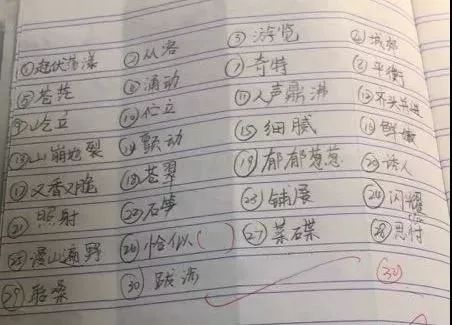 ①起伏荡漾 ②从容 ③游览 ④城郊
⑤苍茫 ⑥涌动 ⑦奇特 ⑧平衡
⑨屹立 ⑩伫立 ⑪人声鼎沸 ⑫齐头并进
⑬山崩地裂 ⑭颤动 ⑮细腻 ⑯鲜嫩
⑰又香又脆 ⑱苍翠 ⑲郁郁葱葱 ⑳诱人
㉑照射 ㉒石笋 ㉓铺展 ㉔闪耀
㉕漫山遍野 ㉖恰似( ) ㉗菜碟 ㉘思忖
㉙ ㉚跋涉